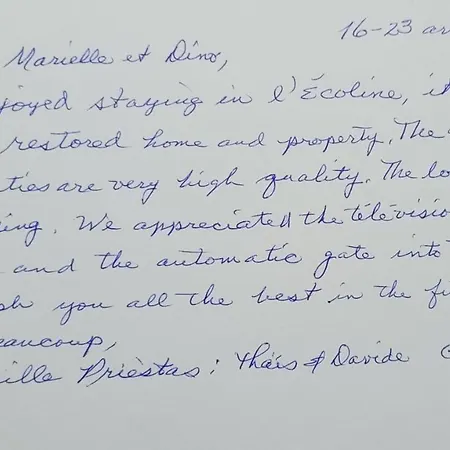 16-23 a
Marielle et Dino,
joyed staying in l'Écoline, i
restored home and property. The
ties are very high quality. The lo
ing. We appreciated the télévisio
and the automatic gate into
sh you all the best in the fu
eaucoup,
ille Prièstas: Thaïs & Davide